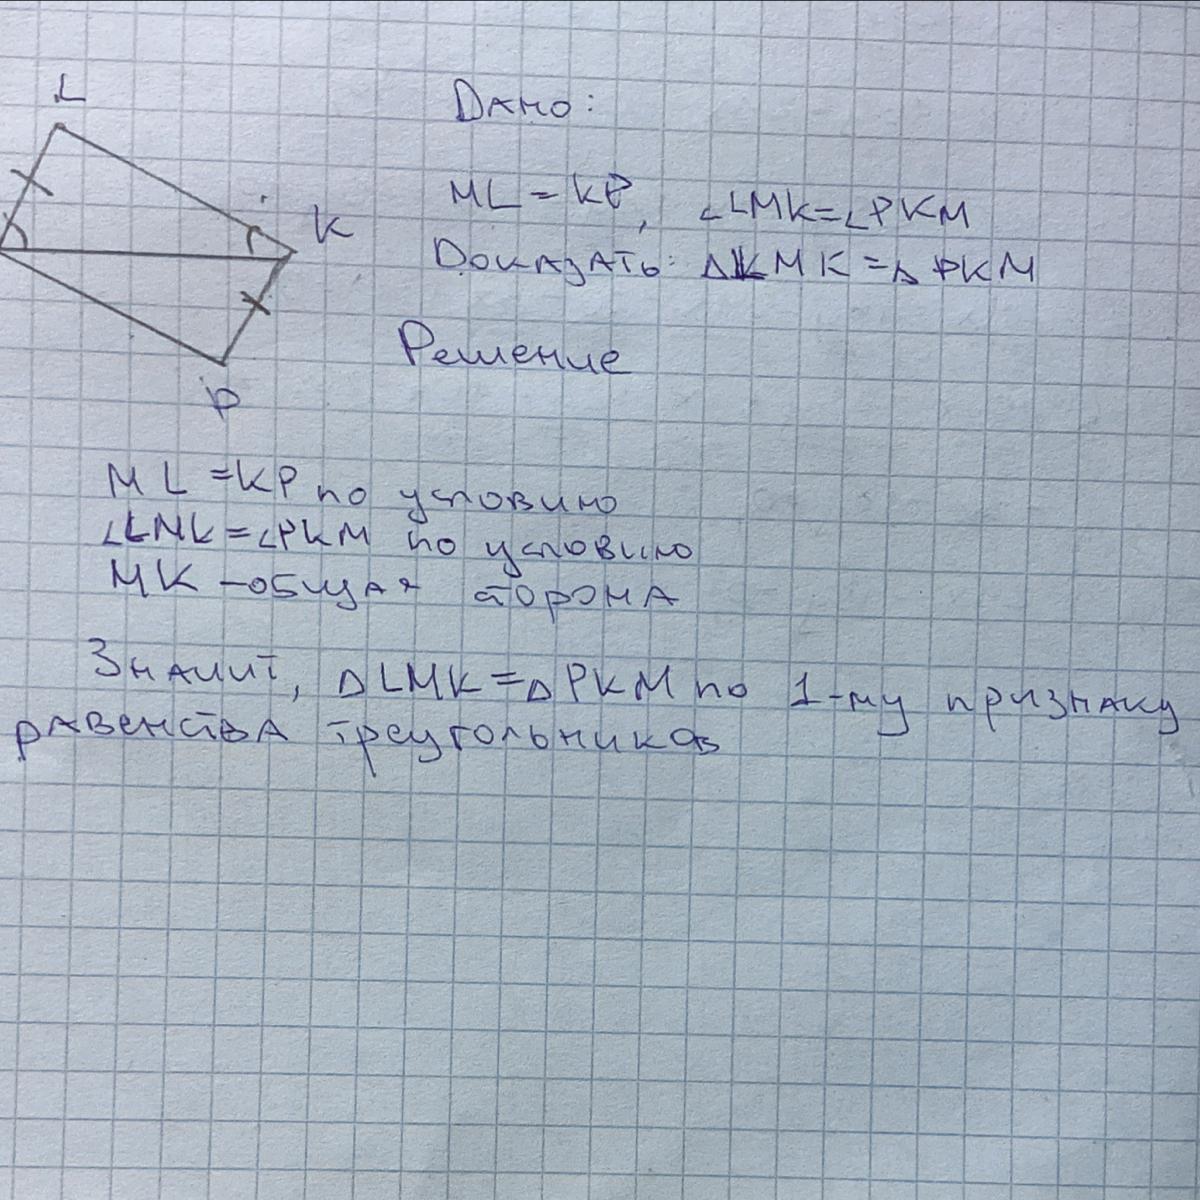 L
Дано:
K
ML = KP, ∠LMK=∠PKM
Доказать: △LMK=△PKM
Решение
P
ML =KP по условию
∠LMK=∠PKM по условию
MK – общая сторона
Значит, △LMK=△PKM по 1-му признаку
равенства треугольников